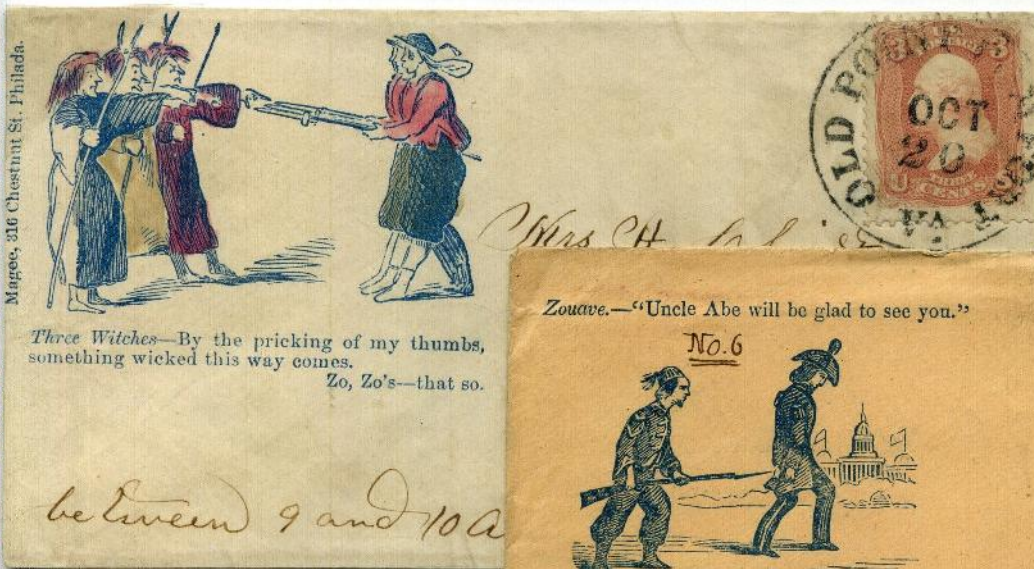 Magee, 316 Chestnut St. Philada.
Three Witches—By the pricking of my thumbs,
something wicked this way comes.
Zo, Zo's—that so.
OLD POINT
OCT
20
VA
3
U
CENTS
Mrs H
between 9 and 10 a
Zouave.—“Uncle Abe will be glad to see you.”
No. 6